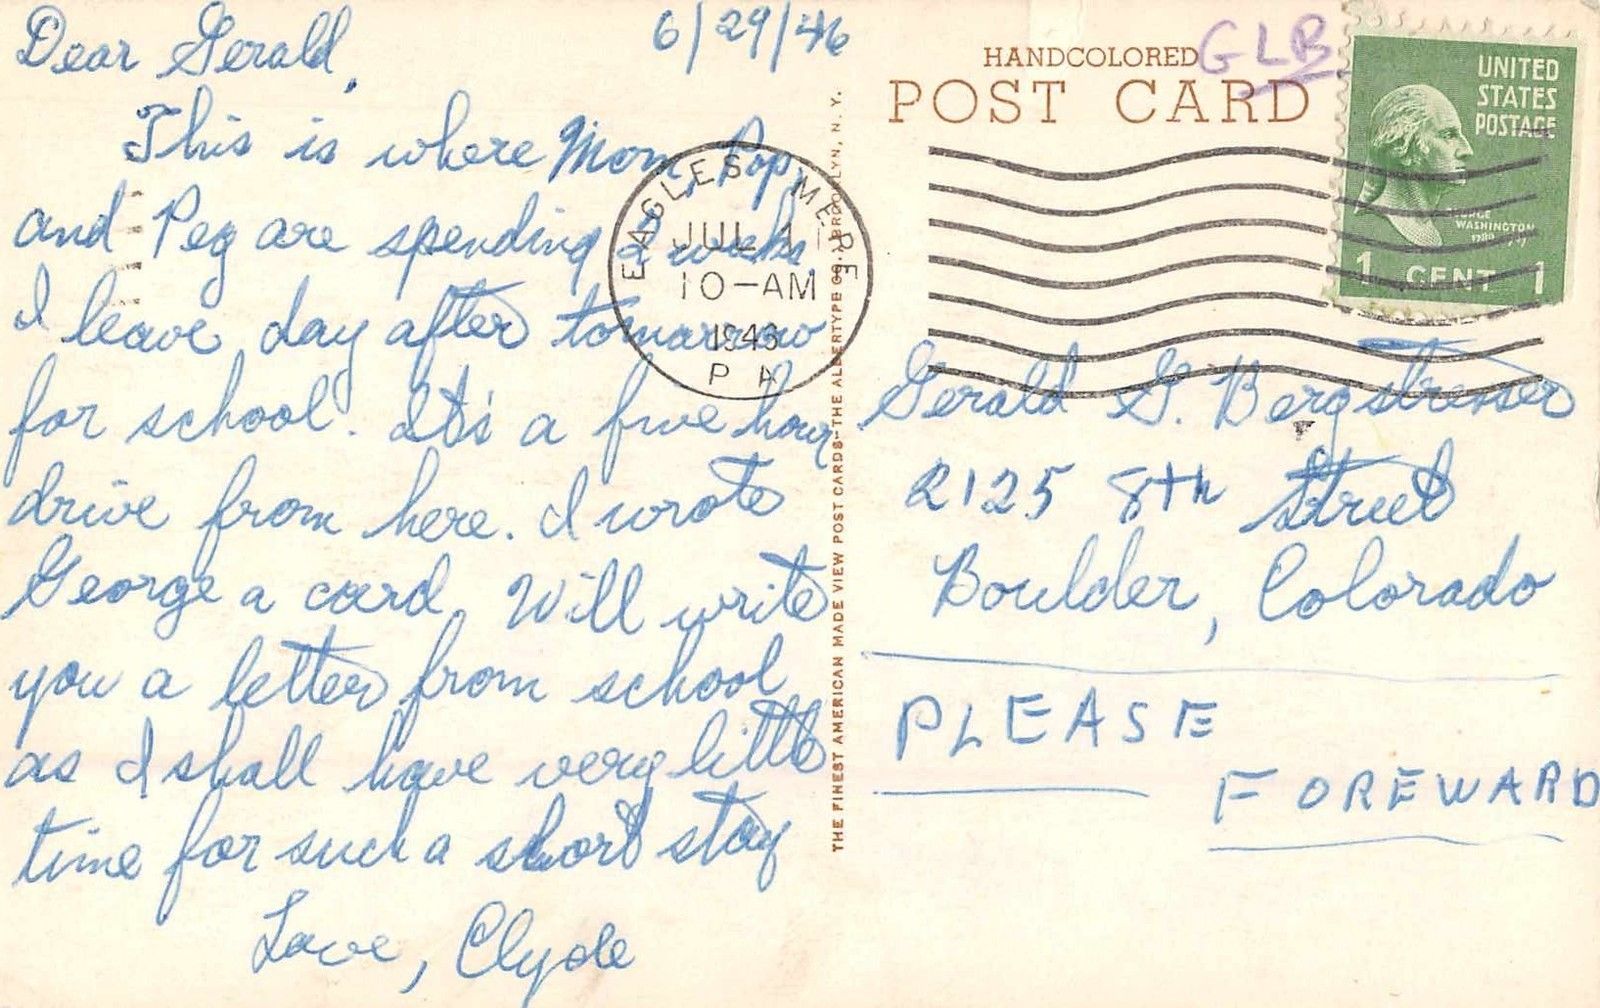 6/29/46
Dear Gerald,
This is where Mom, Pop,
and Peg are spending 2 weeks
I leave day after tomarrow
for school. It's a five hour
drive from here. I wrote
George a card. Will write
you a letter from school
as I shall have very little
time for such a short stay
Love, Clyde
EAGLES MERE
JUL 1
10-AM
1946
PA
THE FINEST AMERICAN MADE VIEW POST CARDS-THE ALBERTYPE CO., BROOKLYN, N. Y.
HANDCOLORED
POST CARD
GLB
UNITED
STATES
POSTAGE
GEORGE
WASHINGTON
1 CENT 1
Gerald G. Bergstresser
2125 8th Street
Boulder, Colorado
PLEASE
FOREWARD